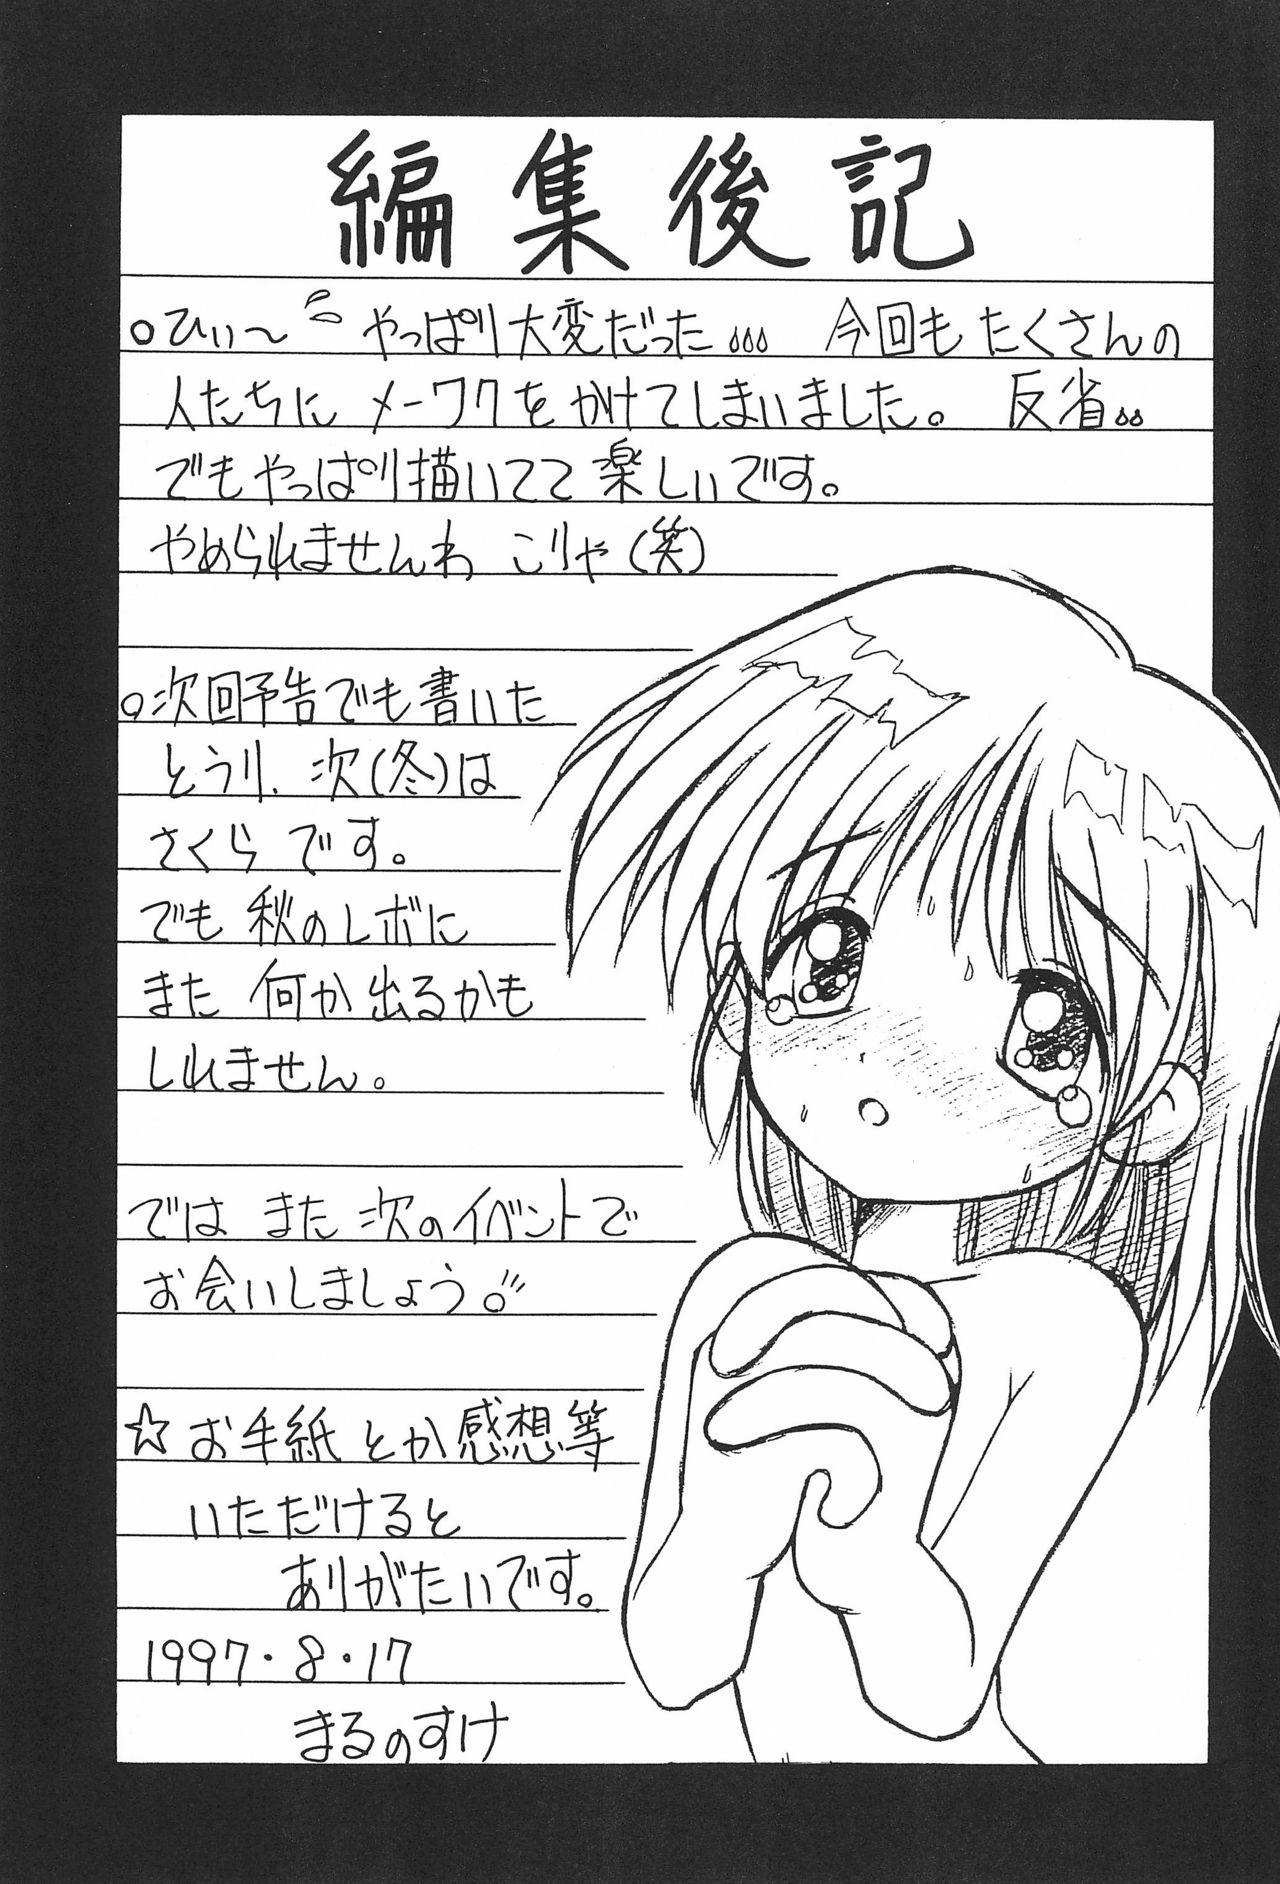 編集後記
○ひぃ〜 やっぱり大変だった... 今回もたくさんの
人たちにメーワクをかけてしまいました。 反省..
でもやっぱり描いてて楽しいです。
やめられませんわ こりゃ(笑)
○次回予告でも書いた
とうり、次(冬)は
さくらです。
でも 秋のレボに
また 何か出るかも
しれません。
では また 次のイベントで
お会いしましょう。
☆お手紙とか感想等
いただけると
ありがたいです。
1997・8・17
まるのすけ